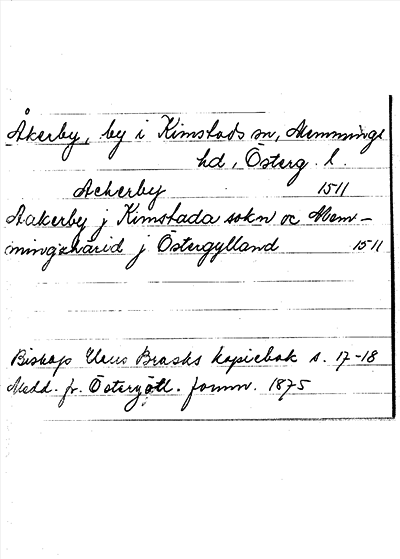 Åkerby, by i Kimstads sn, Memmings
hd, Österg. l.
Ackerby 1511
Aakerby j Kimstada sokn oc Mem-
mingxhärid j Östergylland 1511
Biskop Hans Brasks kopiebok s. 17-18
Medd. fr. Östergötl. fornm. 1875